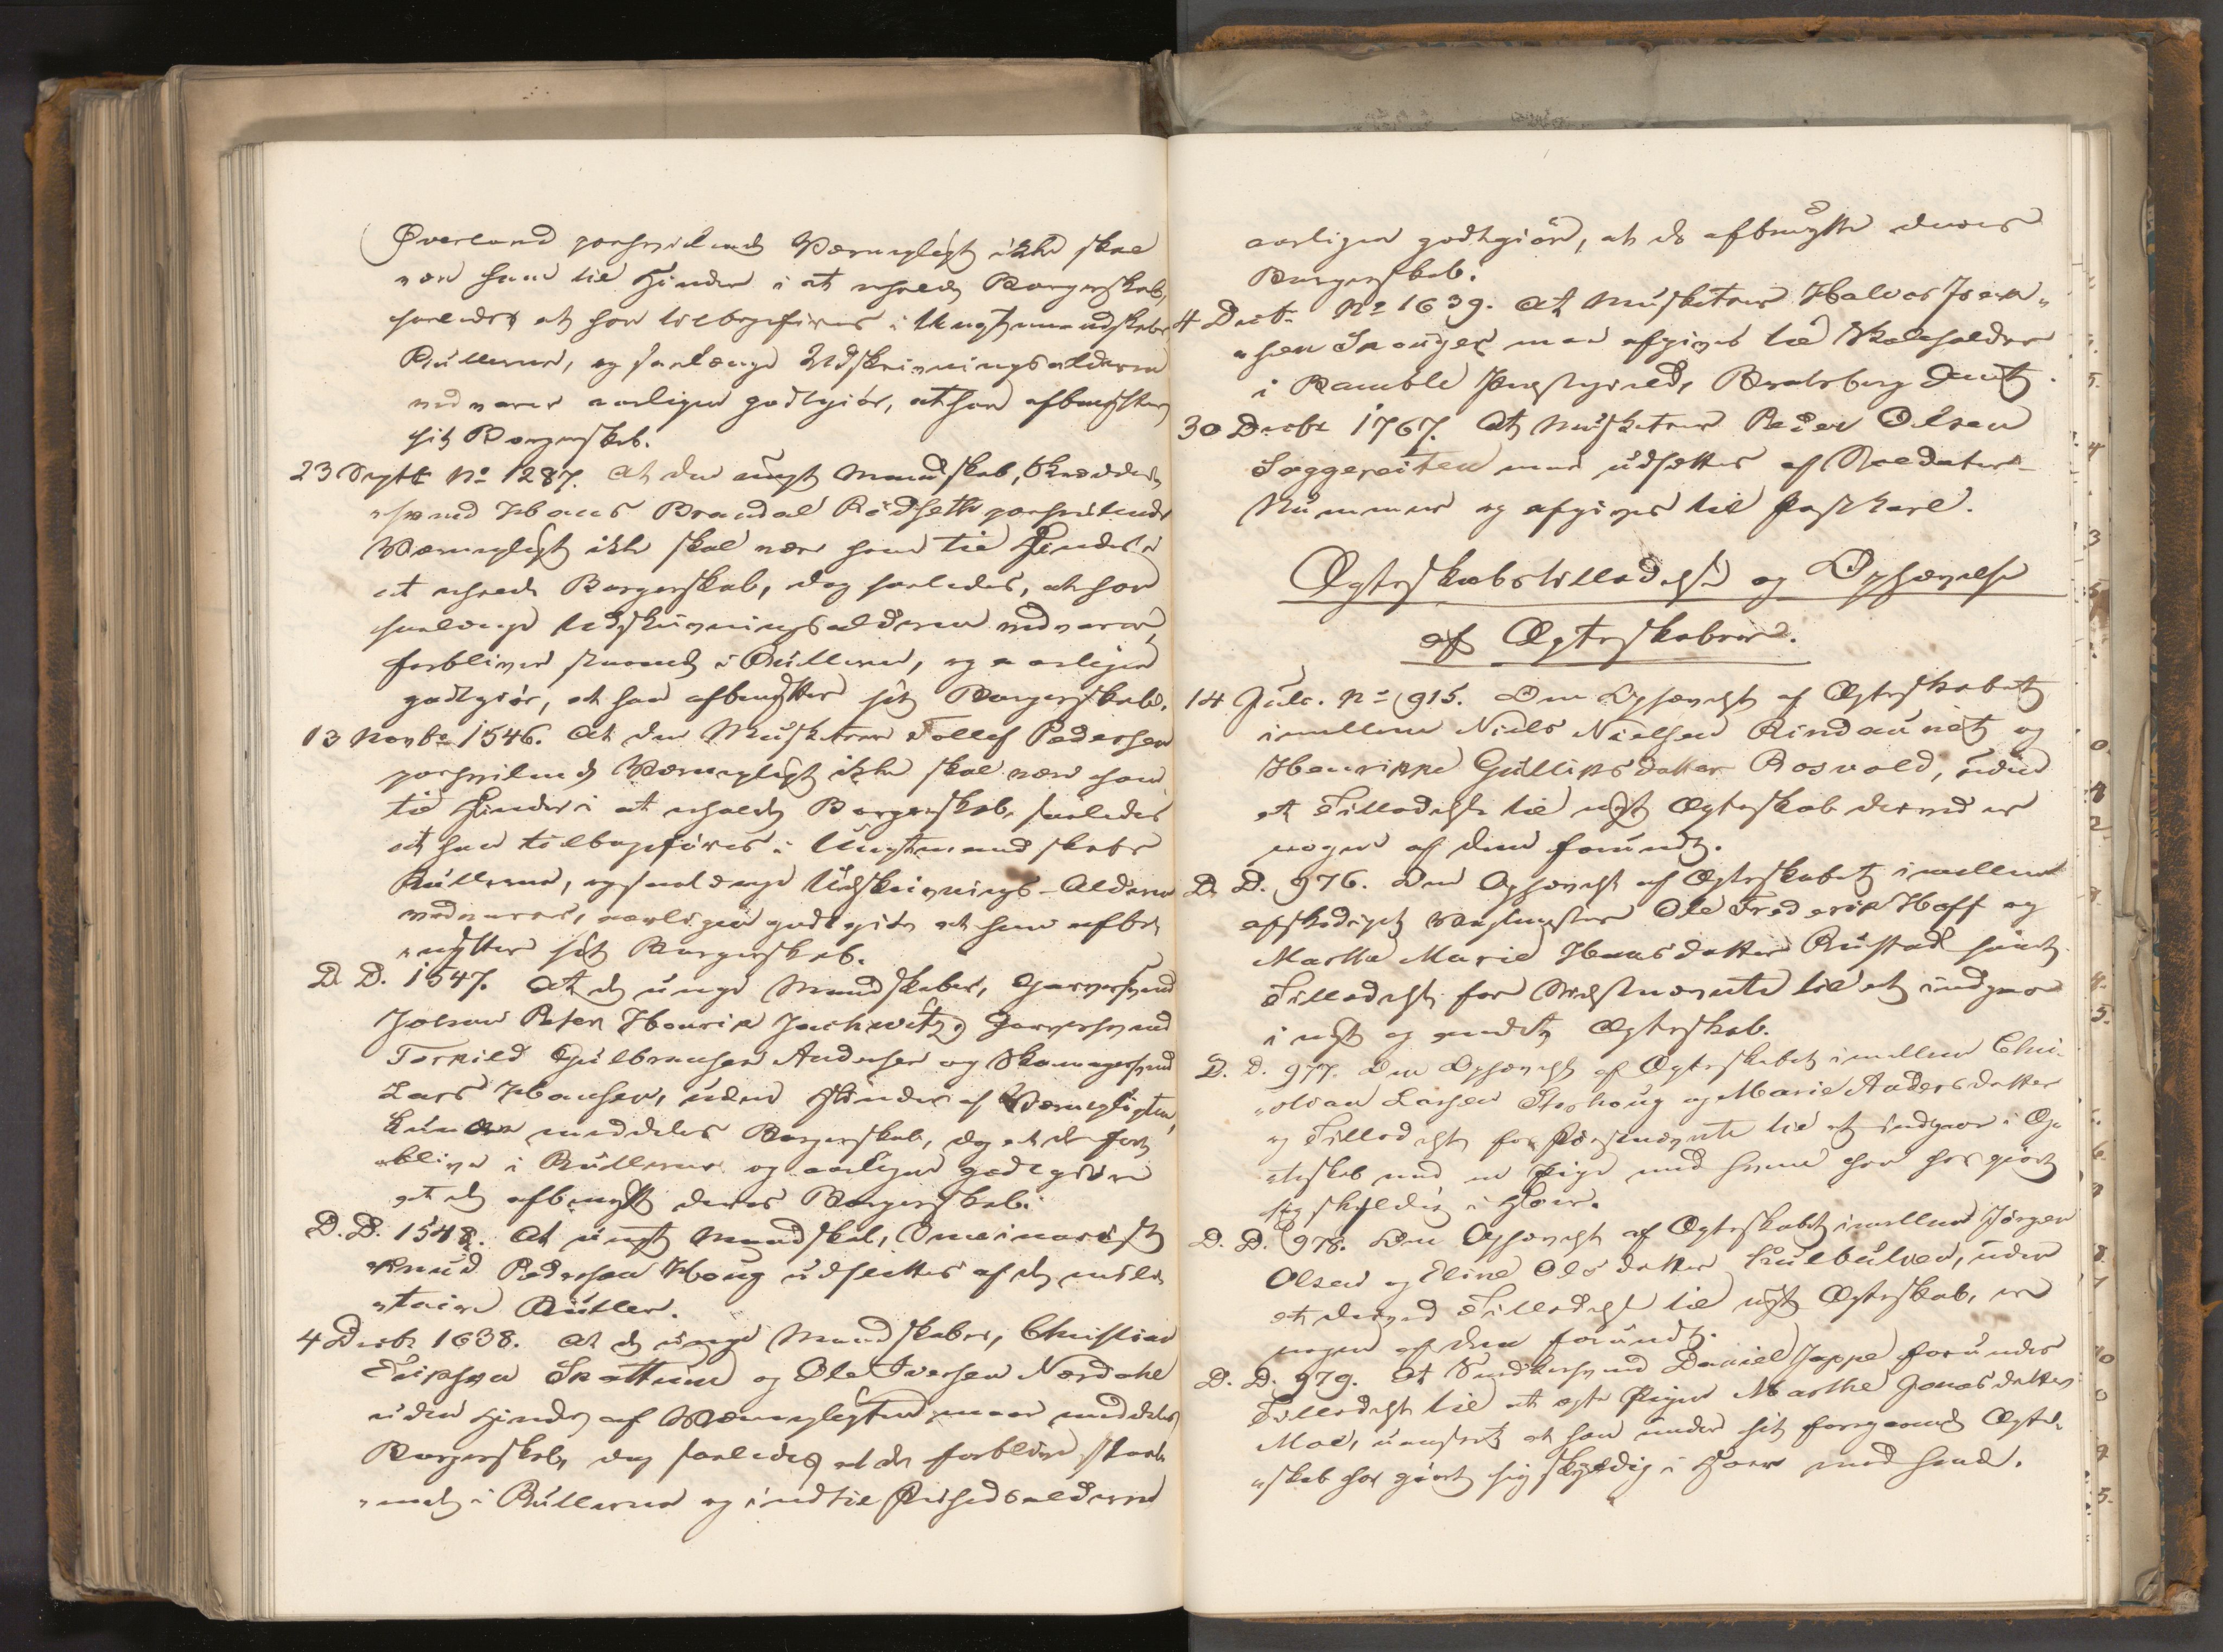 Øverland paahvilende Værnepligt ikke skal
være ham til Hinder i at erholde Borgerskab,
saaledes at han tilbageføres i Ungtmandskabs
Rullerne, og saalænge Udskrivningsalderen
vedvarer aarligen godtgiør, at han afbenytter
sit Borgerskab.
23 Septbr No 1287. At den ungt Mandskab, Skrædder
„svend Hans Brandal Rødseth paahvilende
Værnepligt ikke skal være ham til Hinder i
at erholde Borgerskab, dog saaledes, at han
saalænge Udskrivningsalderen vedvarer,
forbliver staaende i Rullerne, og aarligen
godtgiør, at han afbenytter sit Borgerskab.
13 Novbr 1546. At den Musketeer Tollef Pedersen
paahvilende Værnepligt ikke skal være ham
til Hinder i at erholde Borgerskab, saaledes
at han tilbageføres i Ungtmandskabs
Rullerne, og saalænge Udskrivnings-Alderen
vedvarer, aarligen godtgiør at han afbe„
„nytter sit Borgerskab.
D. D. 1547. At de unge Mandskaber, Garversvend
Johan Peter Henrik Jachwitz, Garversvend
Torkild Gulbransen Andersen og Skomagersvend
Lars Hansen, uden Hinder af Værnepligten,
kunne meddeles Borgerskab, dog at de for„
„blive i Rullerne og aarligen godtgiøre
at de afbenytte deres Borgerskab.
D. D. 1548. At ungt Mandskab,
Knud Pedersen Houg udslettes af de mili„
„taire Ruller.
4 Decbr 1638. At de unge Mandskaber, Christian
Erichsen Skøttum og Ole Iversen Nordahl
uden Hinder af Værnepligten maae meddeles
Borgerskab, dog saaledes at de forblive staa„
„ende i Rullerne og indtil Frihedsalderen
aarligen godtgiøre, at de afbenytte deres
Borgerskab.
4 Decbr No 1639. At Musketeer Halvor Isak„
„sen Stanger maa afgives til Skoleholder
i Bamble Præstegield, Bratsberg Amt.
30 Decbr 1767. At Musketeer Peder Olsen
Laggereiten maa udsættes af Soldater-
Nummer og afgives til Postkarl.
Ægteskabstilladelse og Ophævelse
af Ægteskaber.
14 Julii. No 915. Om Ophævelse af Ægteskabet
imellem Niels Nielsen Rindaunet og
Henrikke Gulliksdatter Rosvold, uden
at Tilladelse til nyt Ægteskab derved er
nogen af dem forundt.
D. D. 976. Om Ophævelse af Ægteskabet imellem
afskediget Vagtmester Ole Frederik Hoff og
Martha Marie Hansdatter Rustad samt
Tilladelse for Sidstnævnte til at indgaae
i nyt og andet Ægteskab.
D. D. 977. Om Ophævelse af Ægteskabet imellem Chri„
„stian Larsen Storhoug og Marie Andersdatter
og Tilladelse for Førstnævnte til at indgaae i Æg„
„teskab med en Pige med hvem han har giort
sig skyldig i Hoer.
D. D. 978. Om Ophævelse af Ægteskabet imellem Jørgen
Olsen og Eline Olsdatter Kulbulved, uden
at derved Tilladelse til nyt Ægteskab, er
nogen af dem forundt.
D. D. 979. At Snedkersvend Daniel Jappe forundes
Tilladelse til at ægte Pigen Marthe Jonasdatter
Moe, uanseet at han under sit foregaaende Ægte„
„skab har giort sig skyldig i Hoer med hende.